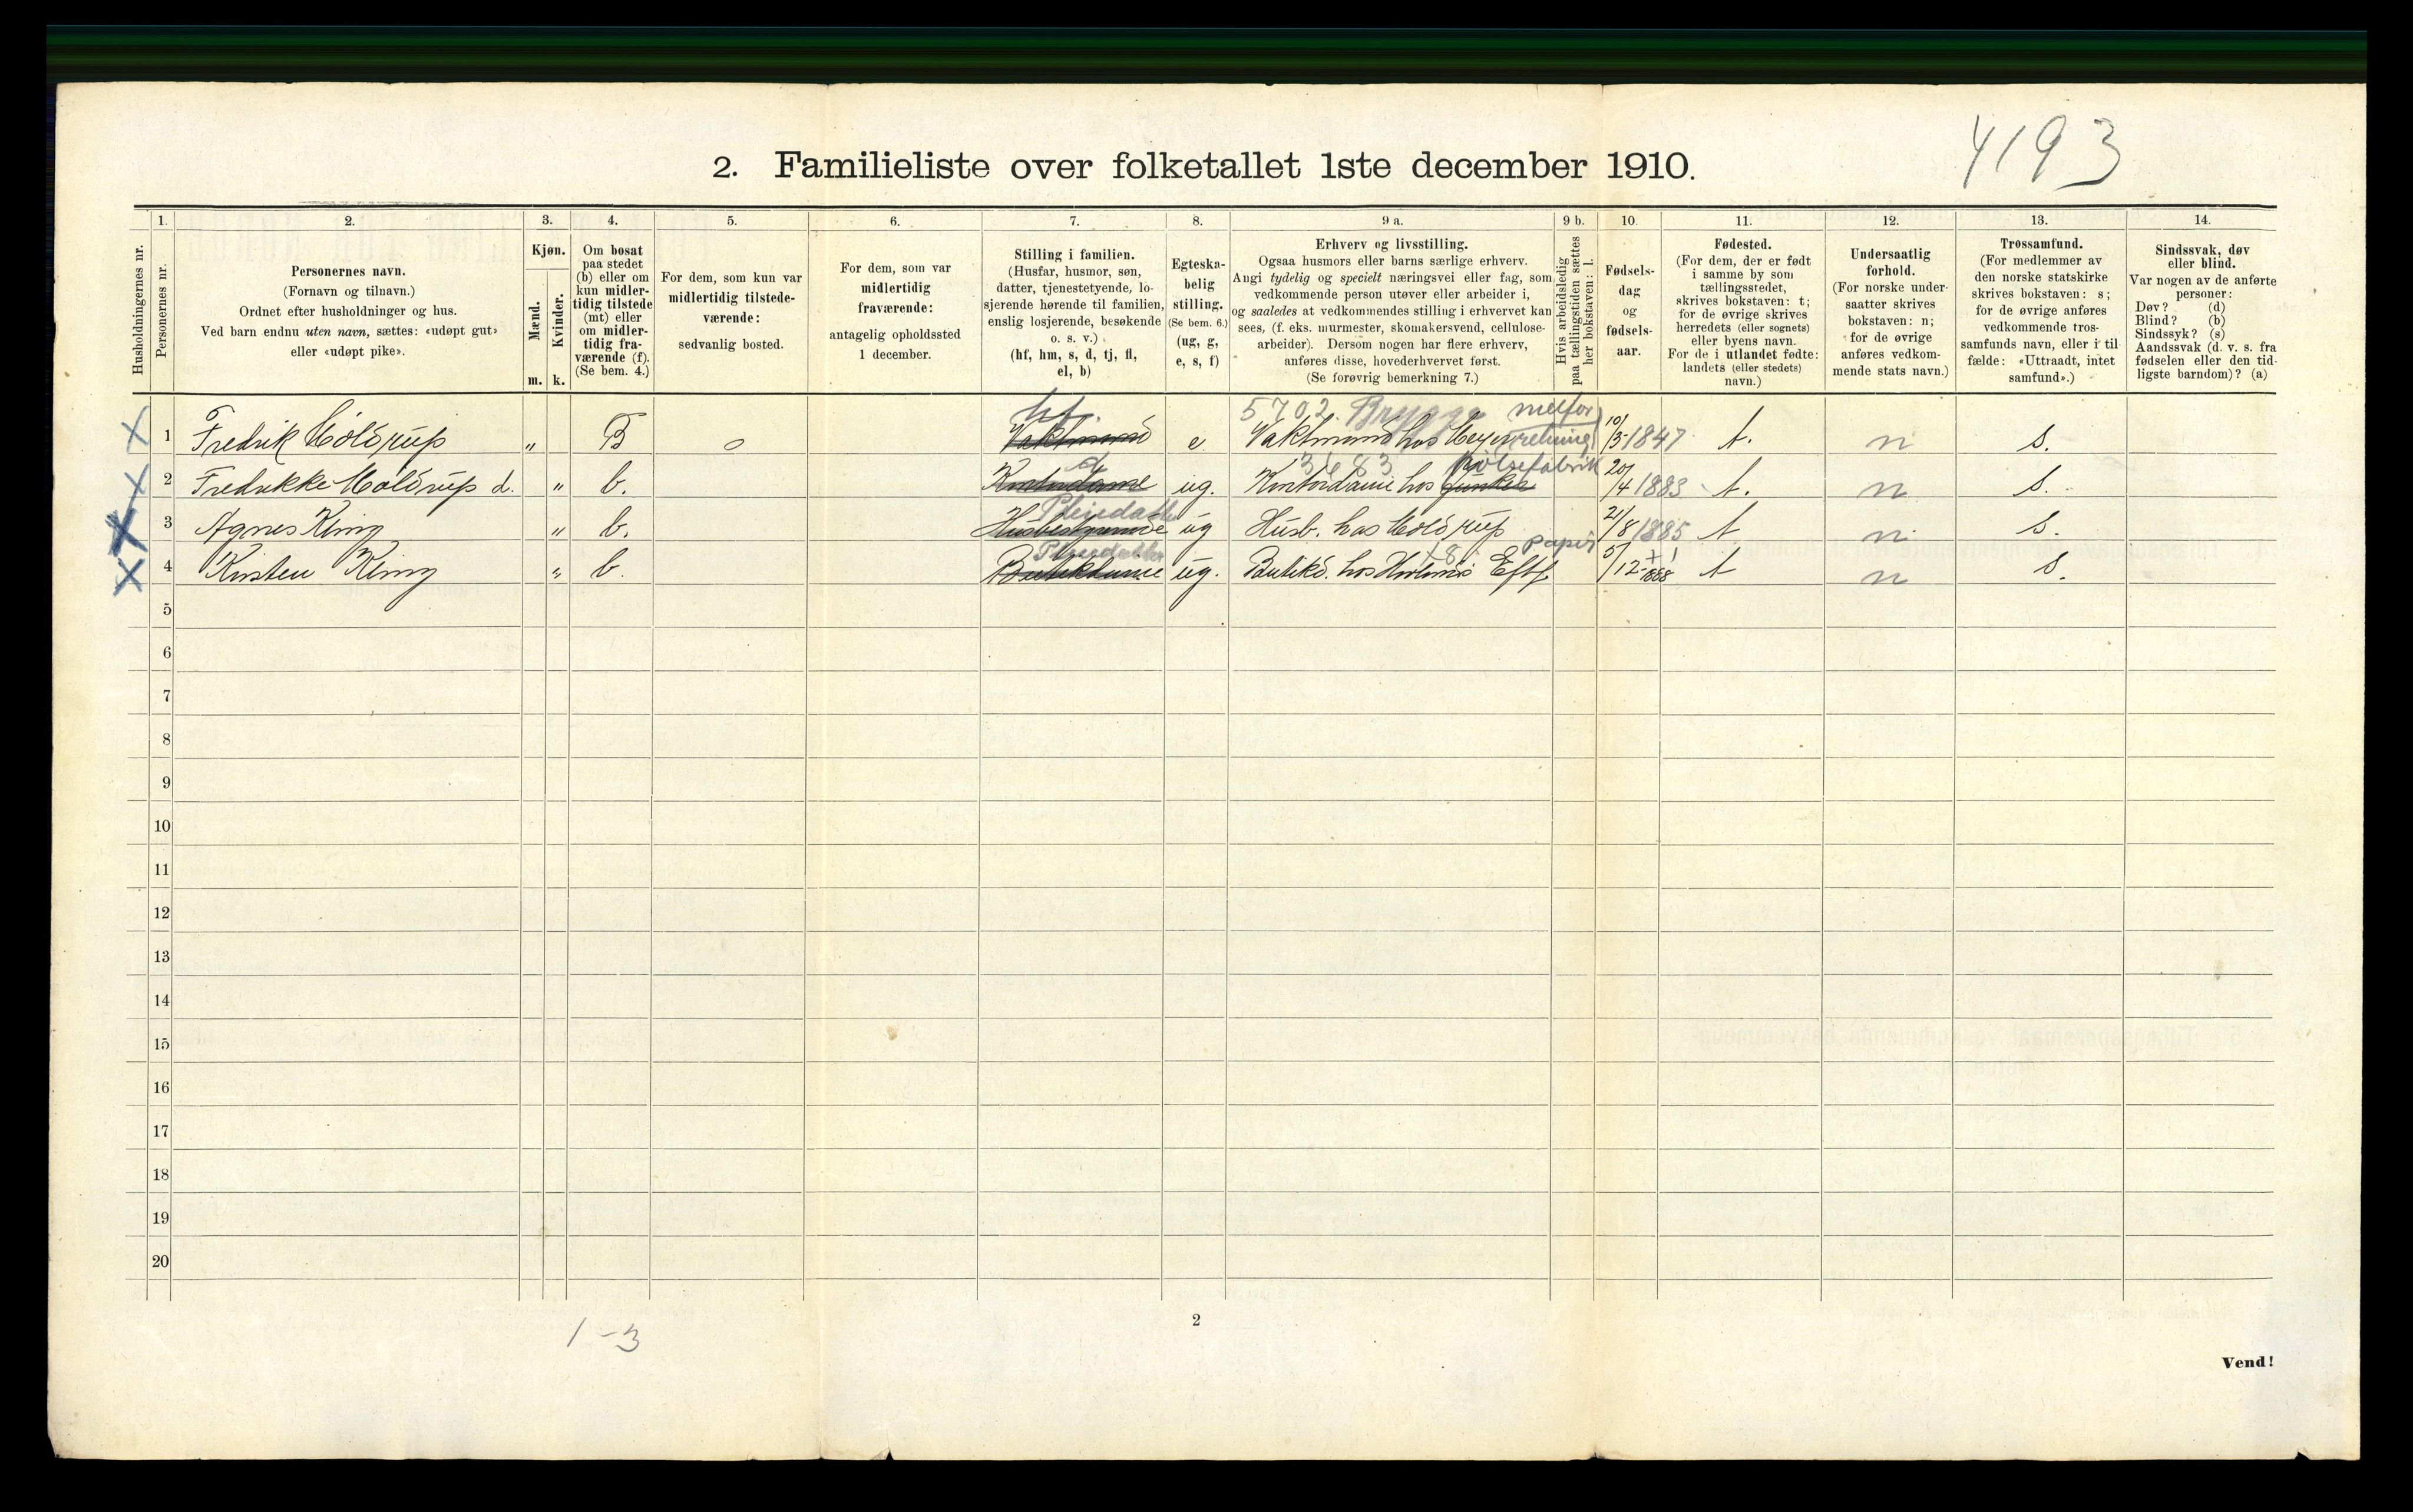 4193
2. Familieliste over folketallet 1ste december 1910.
1. 2. 3. 4. 5. 6. 7. 8. 9 a. 9 b. 10. 11. 12. 13. 14.
Husholdningernes nr.
Personernes nr.
Personernes navn.
(Fornavn og tilnavn.)
Ordnet efter husholdninger og hus.
Ved barn endnu uten navn, sættes: «udøpt gut»
eller «udøpt pike».
Kjøn.
Mænd.
Kvinder.
m. k.
Om bosat
paa stedet
(b) eller om
kun midler-
tidig tilstede
(mt) eller
om midler-
tidig fra-
værende (f).
(Se bem. 4.)
For dem, som kun var
midlertidig tilstede-
værende:
sedvanlig bosted.
For dem, som var
midlertidig
fraværende:
antagelig opholdssted
1 december.
Stilling i familien.
(Husfar, husmor, søn,
datter, tjenestetyende, lo-
sjerende hørende til familien,
enslig losjerende, besøkende
o. s. v.)
(hf, hm, s, d, tj, fl,
el, b)
Egteska-
belig
stilling.
(Se bem. 6.)
(ug, g,
e, s, f)
Erhverv og livsstilling.
Ogsaa husmors eller barns særlige erhverv.
Angi tydelig og specielt næringsvei eller fag, som
vedkommende person utøver eller arbeider i,
og saaledes at vedkommendes stilling i erhvervet kan
sees, (f. eks. murmester, skomakersvend, cellulose-
arbeider). Dersom nogen har flere erhverv,
anføres disse, hovederhvervet først.
(Se forøvrig bemerkning 7.)
Hvis arbeidsledig
paa tællingstiden sættes
her bokstaven: l.
Fødsels-
dag
og
fødsels-
aar.
Fødested.
(For dem, der er født
i samme by som
tællingsstedet,
skrives bokstaven: t;
for de øvrige skrives
herredets (eller sognets)
eller byens navn.
For de i utlandet fødte:
landets (eller stedets)
navn.)
Undersaatlig
forhold.
(For norske under-
saatter skrives
bokstaven: n;
for de øvrige
anføres vedkom-
mende stats navn.)
Trossamfund.
(For medlemmer av
den norske statskirke
skrives bokstaven: s;
for de øvrige anføres
vedkommende tros-
samfunds navn, eller i til-
fælde: «Uttraadt, intet
samfund».)
Sindssvak, døv
eller blind.
Var nogen av de anførte
personer:
Døv? (d)
Blind? (b)
Sindssyk? (s)
Aandssvak (d. v. s. fra
fødselen eller den tid-
ligste barndom)? (a)
hf. 5702. Brygge
1 Fredrik Moldrup " B o Vaktmand e Vaktmand hos 10/3 1847 t. n s.
d 3683 pølsefabrik
2 Fredrikke Moldrup d. " b. Kontordame ug. Kontordame hos 20/4 1883 t. n s.
Pleiedatter
3 Agnes Kling " b. Husbestyrinde ug Husb. hos Moldrup 21/8 1885 t n s.
Pleiedatter papir
4 Kirsten Kling " b. Butikdame ug. Butikd. hos Eftf 5/12 1888 t n s.
5
6
7
8
9
10
11
12
13
14
15
16
17
18
19
20
1-3
2
Vend!